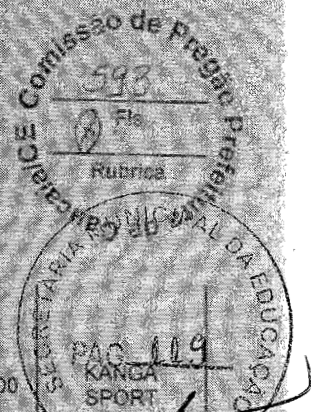 Comissão de Pregão Prefeitura
593
Fls
Rubrica
SECRETARIA MUNICIPAL DA EDUCAÇÃO
PAG 119
KANGA
SPORT
00